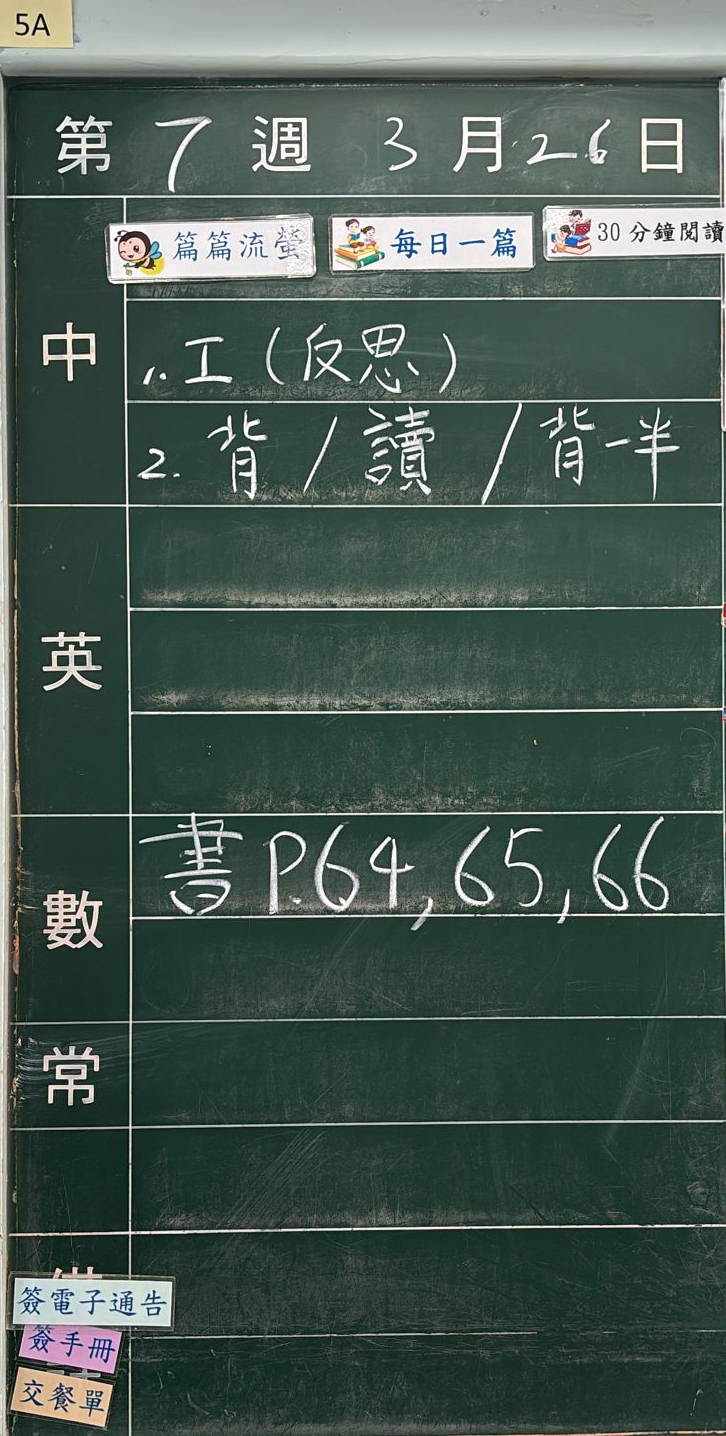 5A
第 7 週 3 月 26 日
篇篇流螢 每日一篇 30 分鐘閱讀
中
1. 工（反思）
2. 背 / 讀 / 背一半
英
數
書 P.64, 65, 66
常
簽電子通告
簽手冊
交餐單